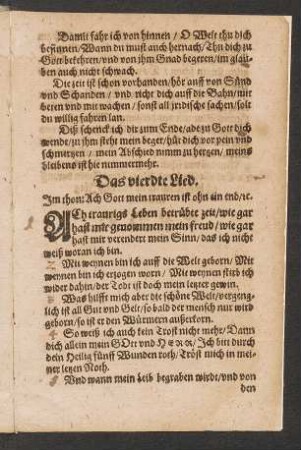 Damit fahr ich von hinnen / O Welt thu dich
besinnen / Wann du must auch hernach / Thu dich zu
Gott bekehren / vnd von jhm Gnad begeren / im glau-
ben auch nicht schwach.
Die zeit ist schon vorhanden / hör auff von Sünd
vnd Schanden / vnd richt dich auff die Bahn / mit
beten vnd mit wachen / sonst all jrdische sachen / solt
du willig fahren lan.
Diß schenck ich dir zum Ende / ade zu Gott dich
wende / zu jhm steht mein beger / hüt dich vor pein vnd
schmertzen / mein Abschied nimm zu hertzen / meins
bleibens ist hie nimmermehr.
Das vierdte Lied.
Im thon: Ach Gott mein trauren ist ohn ein end / ec.
ACh traurigs Leben betrübte zeit / wie gar
hast mir genommen mein freud / wie gar
hast mir verendert mein Sinn / das ich nicht
weiß woran ich bin.
2 Mit weynen bin ich auff die Welt geborn / Mit
weynen bin ich erzogen worn / Mit weynen stirb ich
wider dahin / der Todt ist doch mein letzter gewin.
3 Was hilfft mich aber die schöne Welt / vergeng-
lich ist all Gut vnd Gelt / so bald der mensch nur wird
geborn / so ist er den Würmern außerkorn.
4 So weiß ich auch kein Trost nicht mehr / Dann
dich allein mein GOtt vnd HERR / Ich bitt durch
dein Heilig fünff Wunden roth / Tröst mich in mei-
ner letzten Noth.
5 Vnd wann mein Leib begraben wirdt / vnd von
den